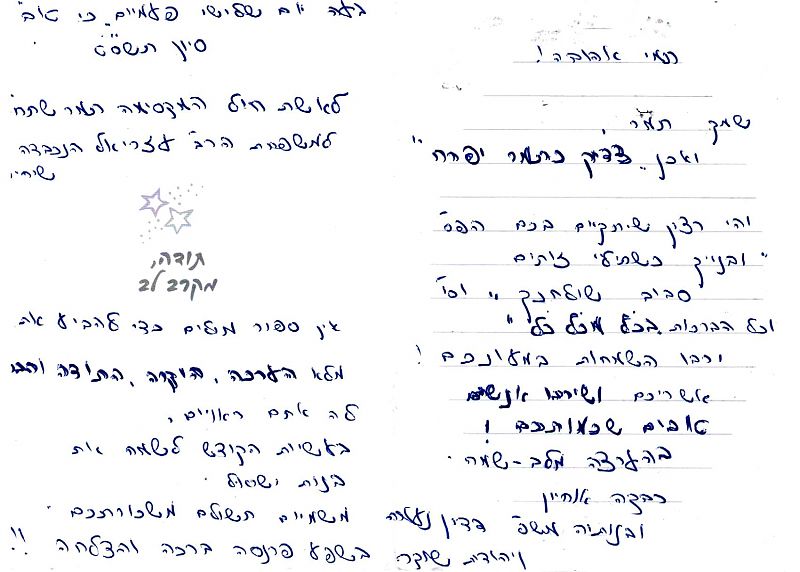 בעה יום שלישי פעמיים כי טוב
סיון תשס"ט
לאשת חיל המקסימה תמר שתח'
למשפחת הרב עזריאל הנכבדה
שיחיו
תודה,
מקרב לב
אין ספור מילים כדי להביע את
מלא הערכה, היקרה, התודה והבו
לה אתם ראויים,
בעשיית הקודש לשמח את
בנות ישראל.
משמיים תשולם משכורתכם
בשפע פרנסה ברכה והצלחה !!
תמי אהובה!
שמך תמר,
ואכן "צדיק כתמר יפרח"
ויהי רצון שיתקיים בכם הפס'
"ובנייך כשתילי זיתים
סביב שולחנך" וכו'
וכל הברכות בכל מכל כל"
וירבו השמחות במעונכם!
אשריכם ושירבו אנשים
טובים שכמותכם!
בהערצה מלב-שמח.
רבקה אוחיון
ובנותיה משפ'
ויהודת